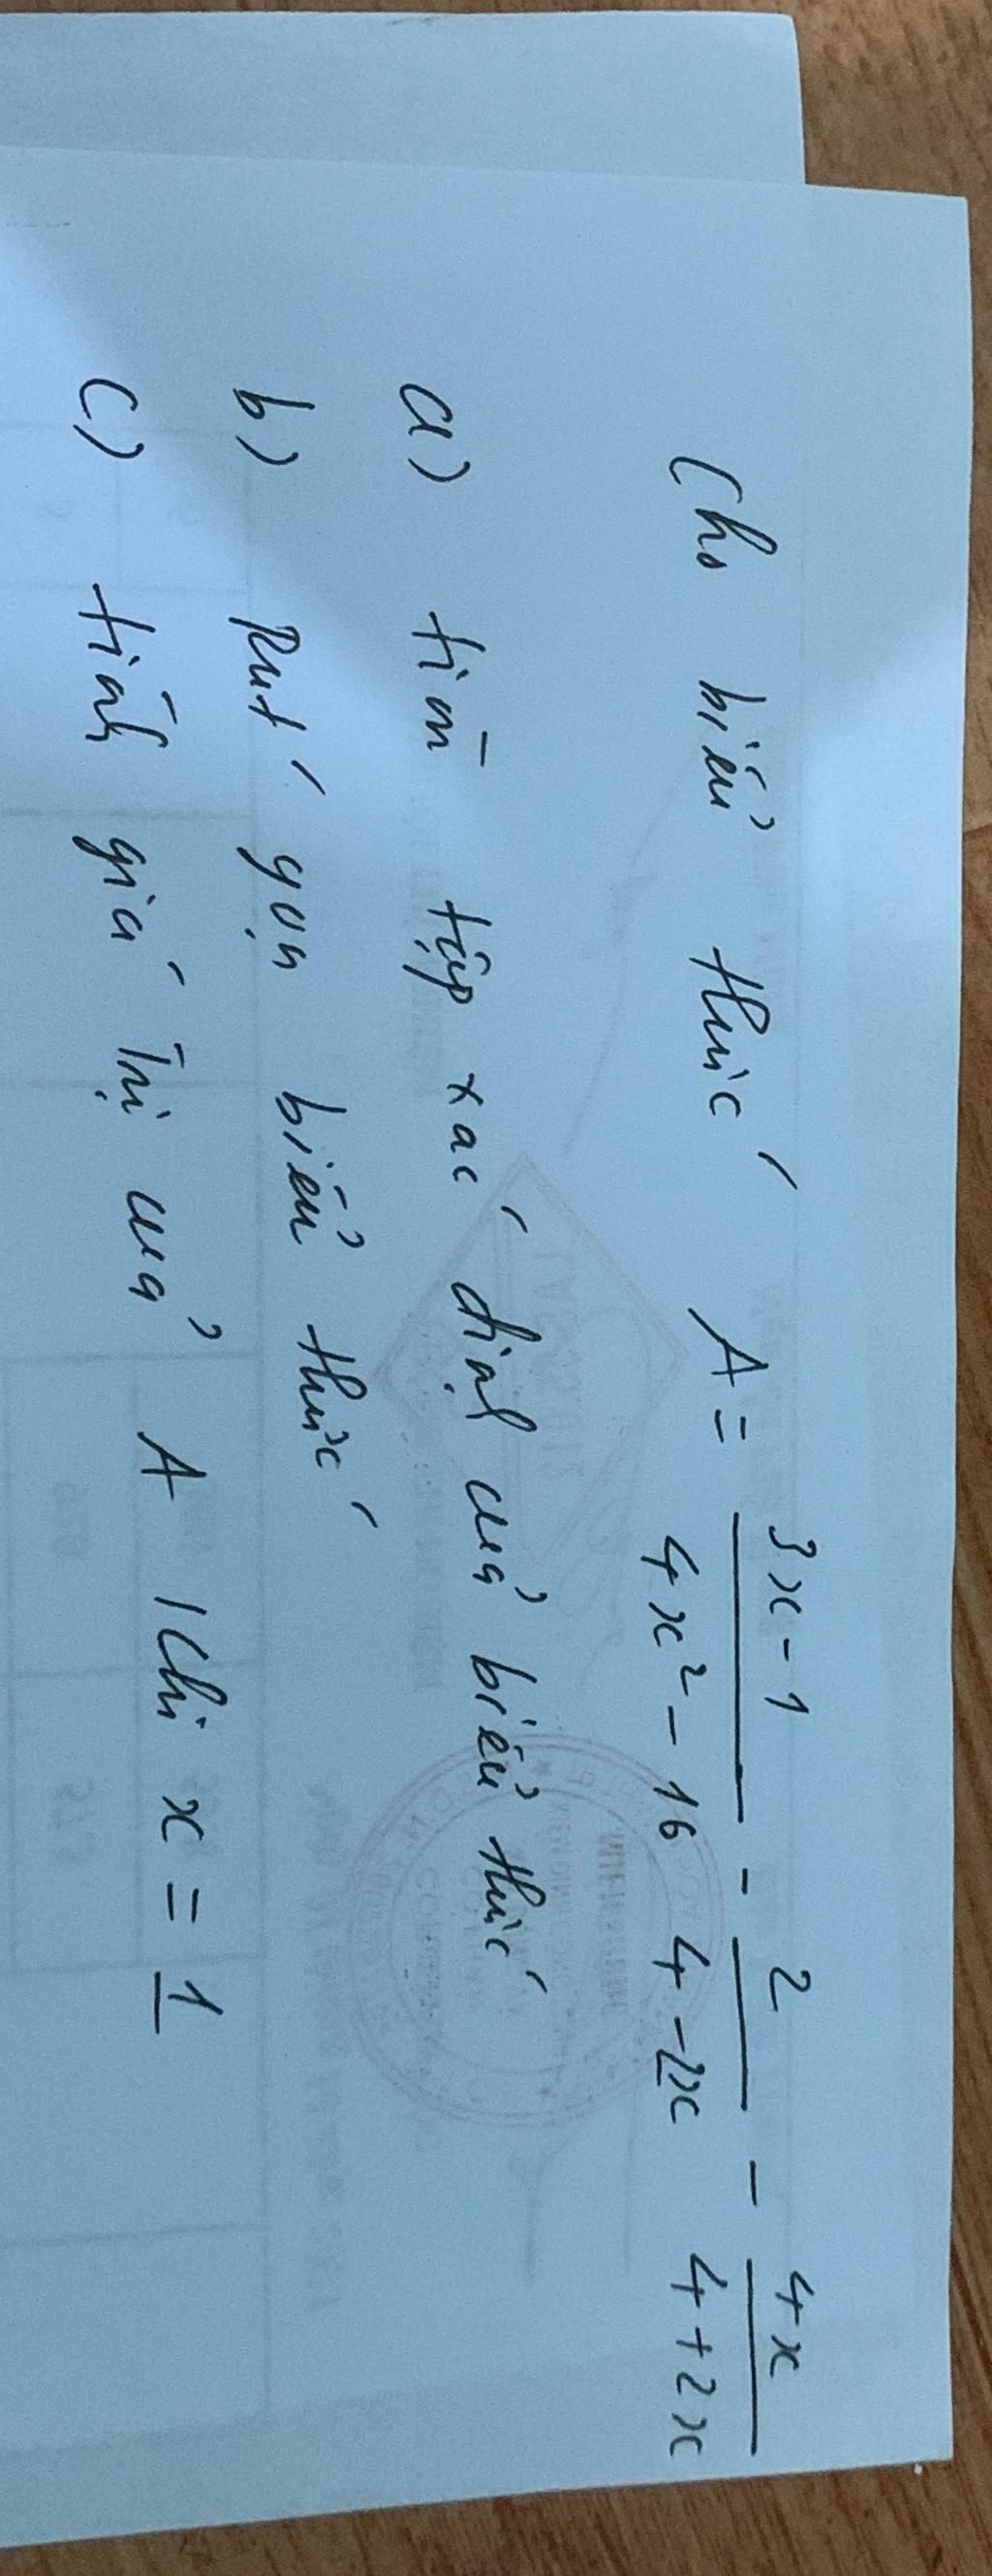 Cho biểu thức A = \frac{3x-1}{4x²-16} - \frac{2}{4-2x} - \frac{4x}{4+2x}
a) tìm tập xác định của biểu thức
b) Rut gọn biểu thức
c) tính giá Trị của A Khi x = 1